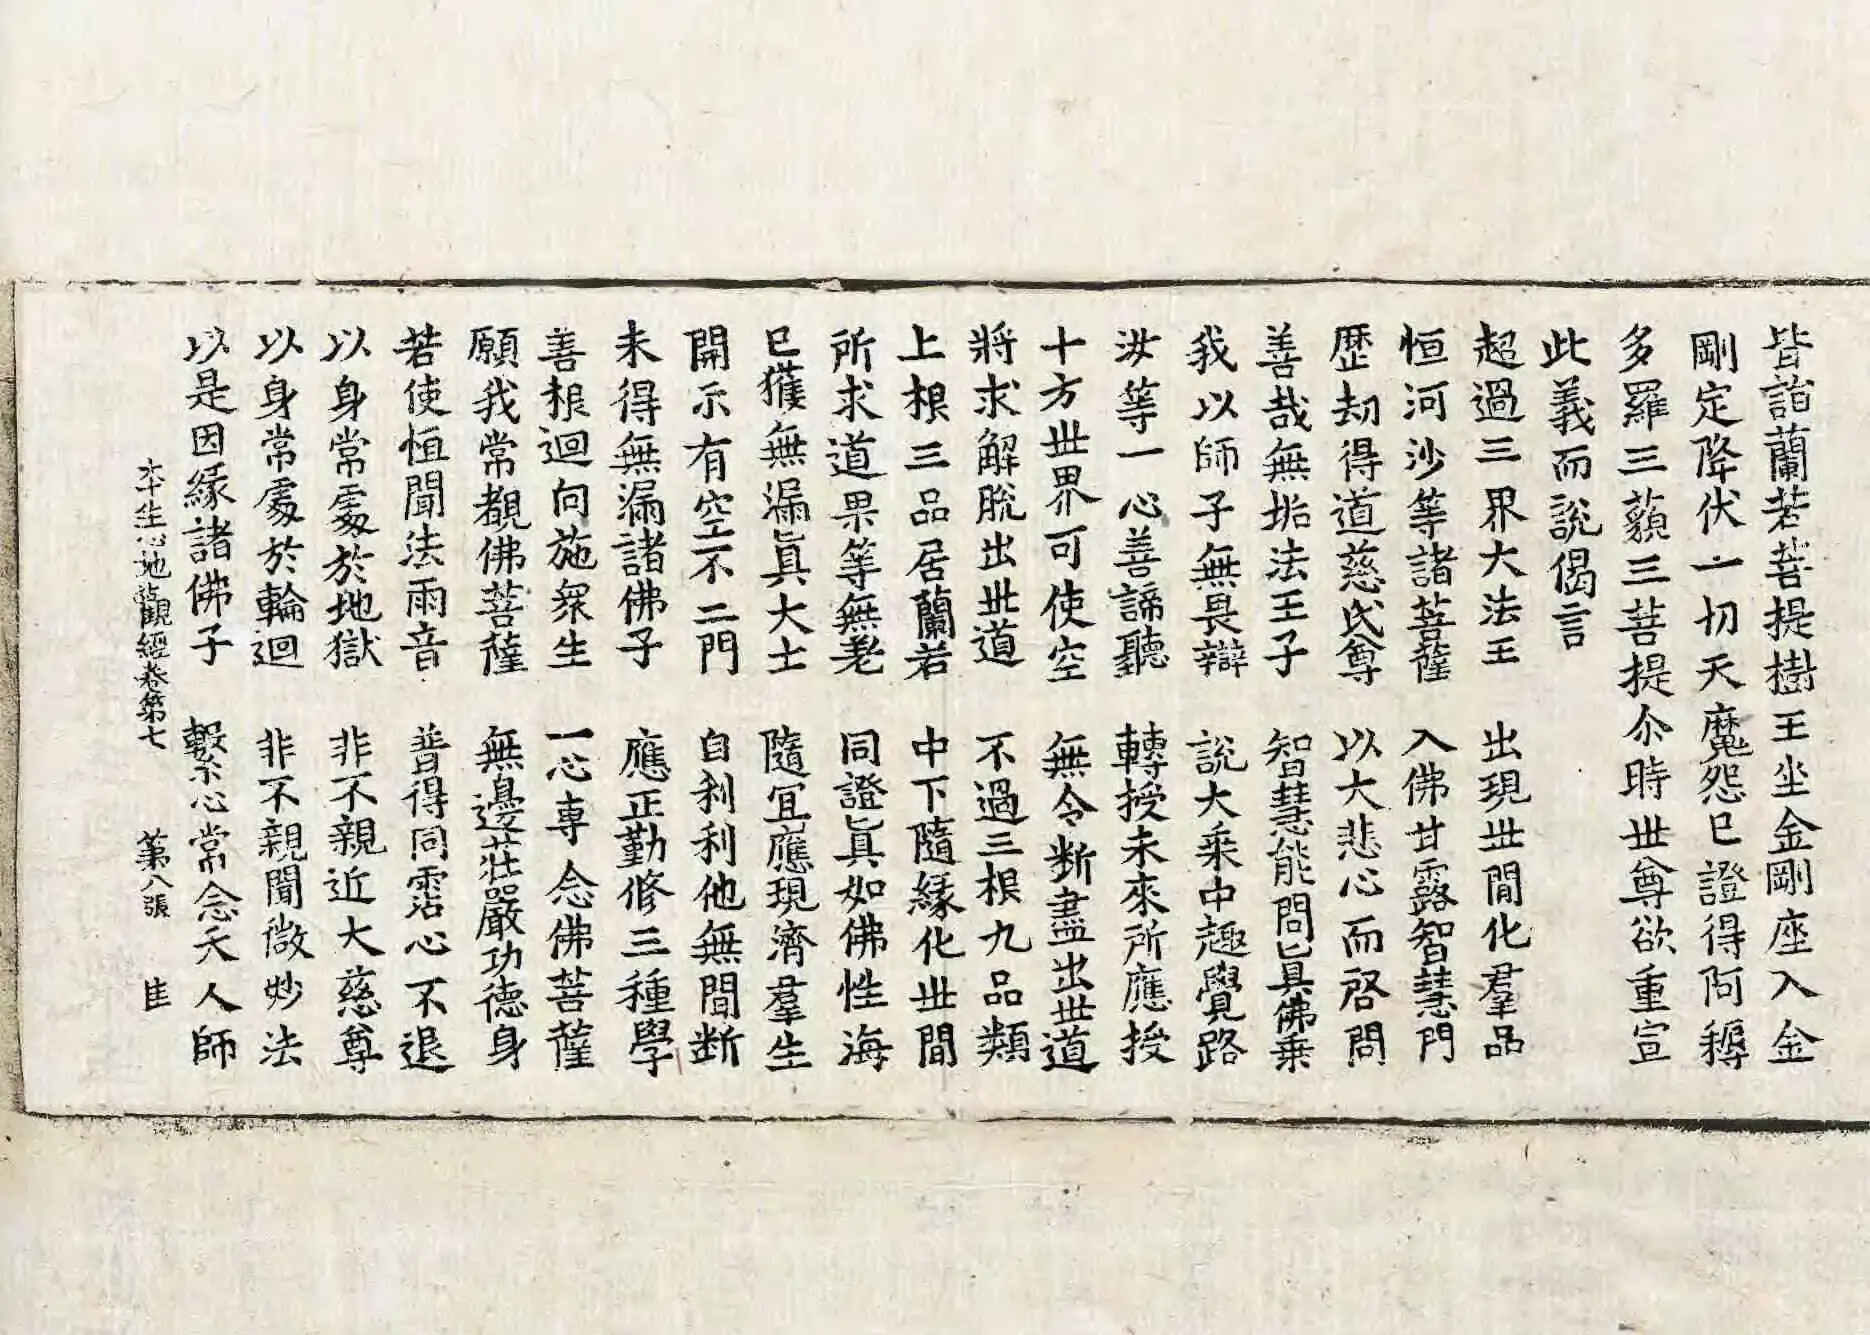 皆詣蘭若菩提樹王坐金剛座入金
剛定降伏一切天魔怨已證得阿耨
多羅三藐三菩提尒時世尊欲重宣
此義而說偈言
超過三界大法王　出現世閒化羣品
恒河沙等諸菩薩　入佛甘露智慧門
歷劫得道慈氏尊　以大悲心而啓問
善哉無垢法王子　智慧能問眞佛乗
我以師子無畏辯　說大乗中趣覺路
汝等一心善諦聽　轉授未來所應授
十方世界可使空　無令断盡出世道
將求解脫出世道　不過三根九品類
上根三品居蘭若　中下隨緣化世閒
所求道果等無差　同證眞如佛性海
已獲無漏眞大士　隨冝應現濟羣生
開示有空不二門　自利利他無閒断
未得無漏諸佛子　應正勤修三種學
善根迴向施衆生　一心專念佛菩薩
願我常覩佛菩薩　無邊莊嚴功德身
若使恒聞法雨音　普得同霑心不退
以身常處於地獄　非不親近大慈尊
以身常處於輪迴　非不親聞微妙法
以是因緣諸佛子　繫心常念天人師
本生心地觀經卷第七　第八張　隹